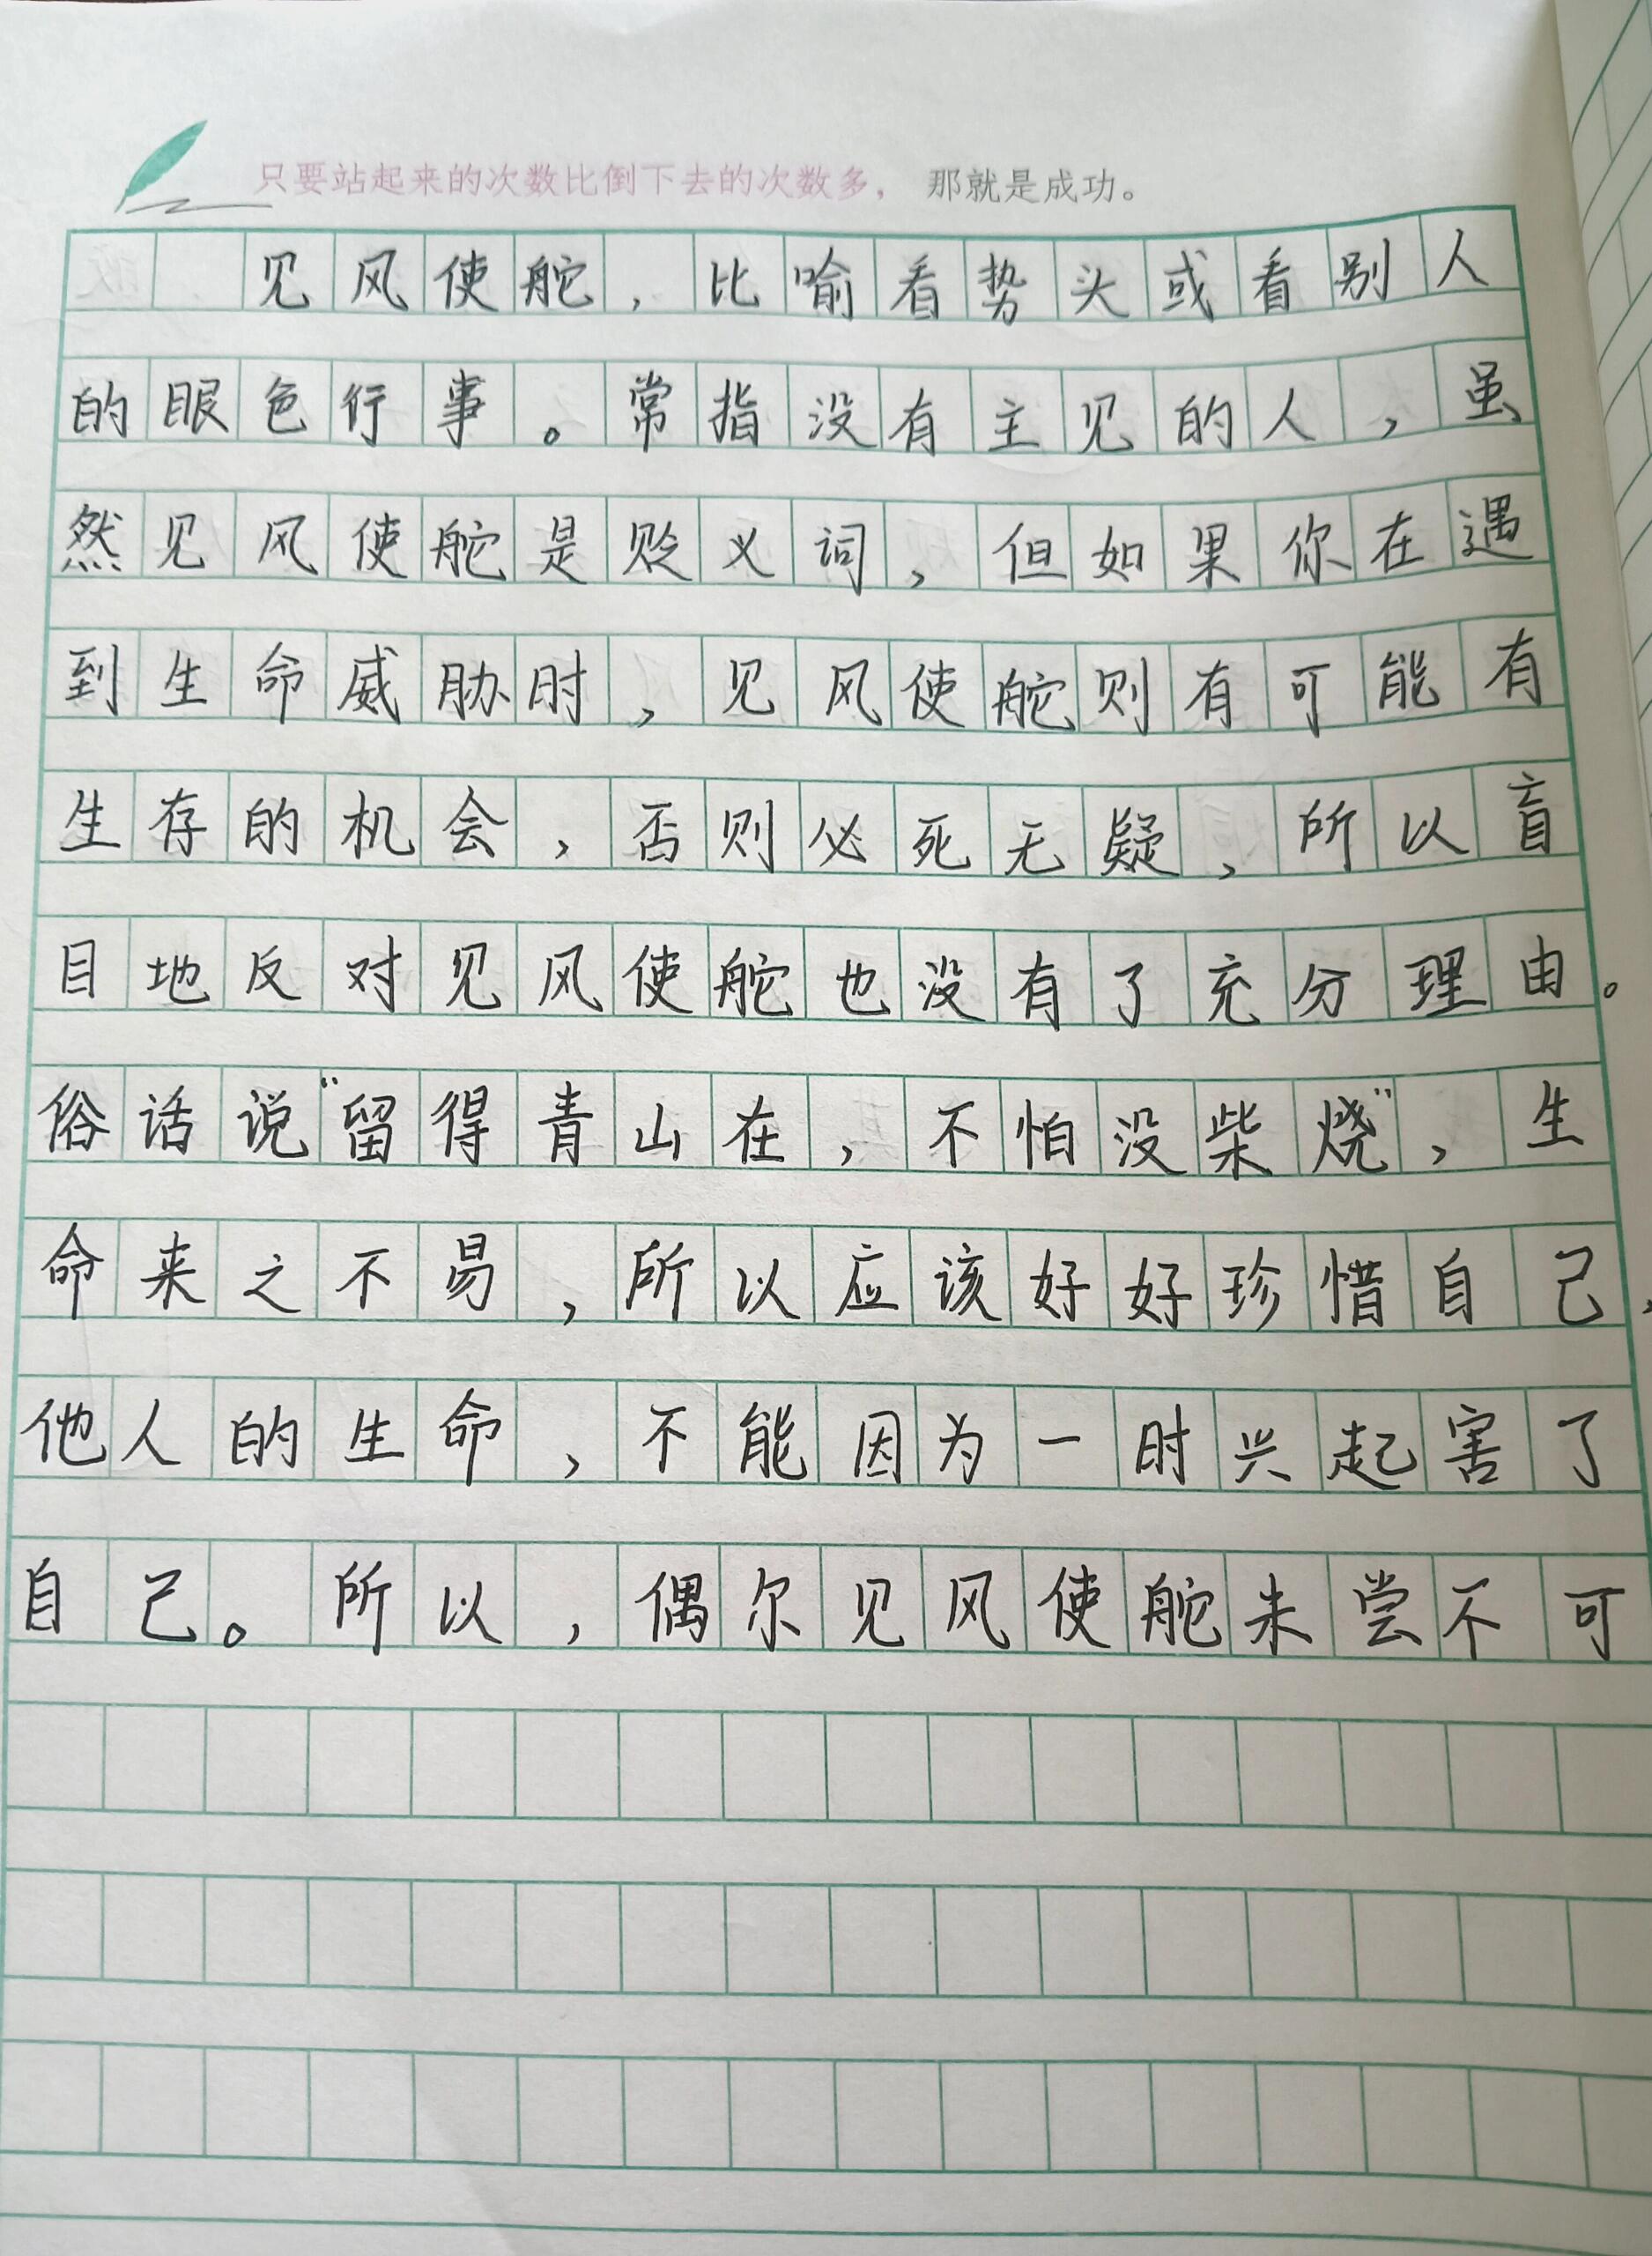 只要站起来的次数比倒下去的次数多，那就是成功。
见风使舵，比喻看势头或看别人
的眼色行事。常指没有主见的人，虽
然见风使舵是贬义词，但如果你在遇
到生命威胁时，见风使舵则有可能有
生存的机会，否则必死无疑，所以盲
目地反对见风使舵也没有了充分理由。
俗话说“留得青山在，不怕没柴烧”，生
命来之不易，所以应该好好珍惜自己，
他人的生命，不能因为一时兴起害了
自己。所以，偶尔见风使舵未尝不可